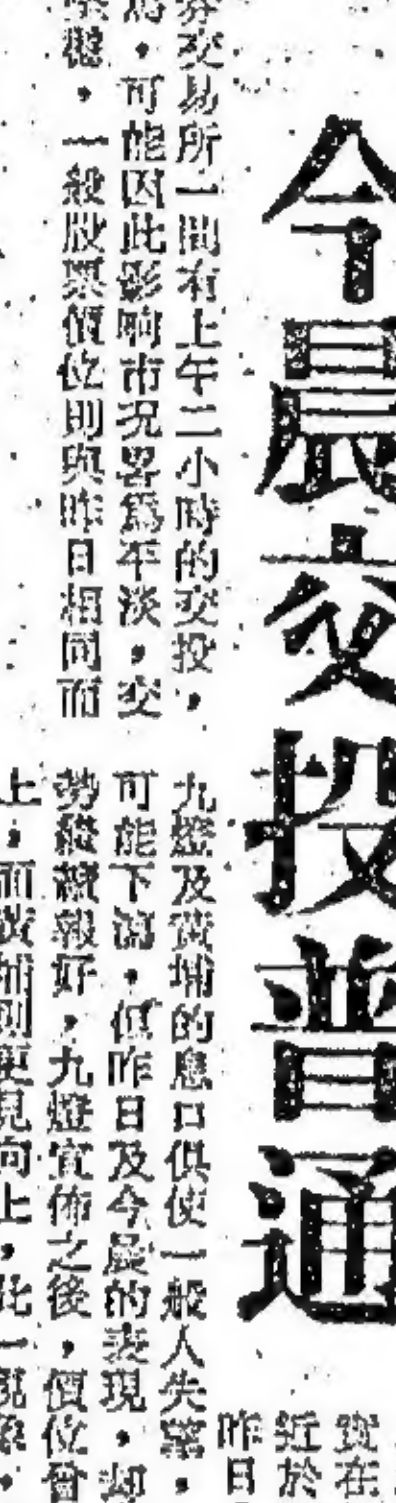 今晨交投普通
實在
近於
昨日
券交易所一間有上午二小時的交投，
，可能因此影响市况畧爲平淡，交
，一般股票價位則與昨日相同而
九燈及黃埔的息口俱使一般人失望，
可能下瀉，但昨日及今晨的表現，却
勢繼續報好，九燈宣佈之後，價位曾
上，而黃埔則更見向上，此一現象，